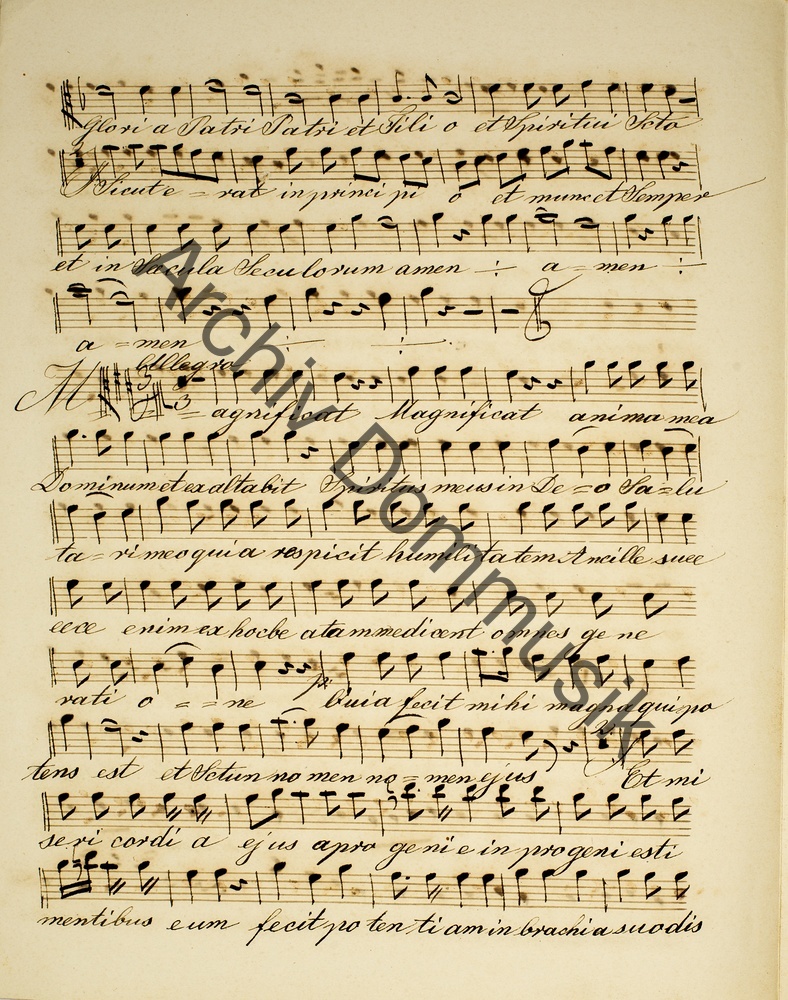 Glori a Patri Patri et Fili o et Spiritui Scto
Sicut e = rat in princi pi o et nunc et Semper
et in Sacula Seculorum amen ÷ a = men ÷
a = men ÷ ÷
Allegro
M = agnificat Magnificat anima mea
Dominum et exaltabit Spiritus meus in De = o Sa = lu
ta = ri meo quia respicit humilitatem Ancille suee
ecce enim ex hocbe atam medicent omnes ge ne
rati o = = ne Quia fecit mihi magna qui po
tens est et Sctun no men no = men ejus Et mi
seri cordi a ejus apro genïe in progeni esti
mentibus eum fecit po ten ti am in brachi a suo dis
Archiv Dommusik